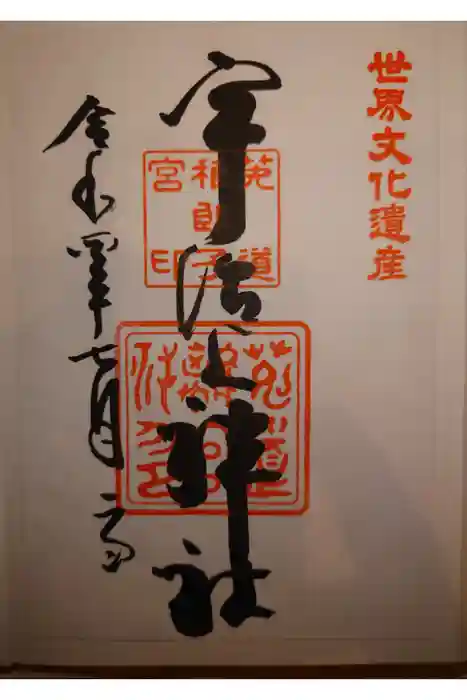 世界文化遺産
宇治上神社
菟道
稚郎子
宮印
令和四年七月二日